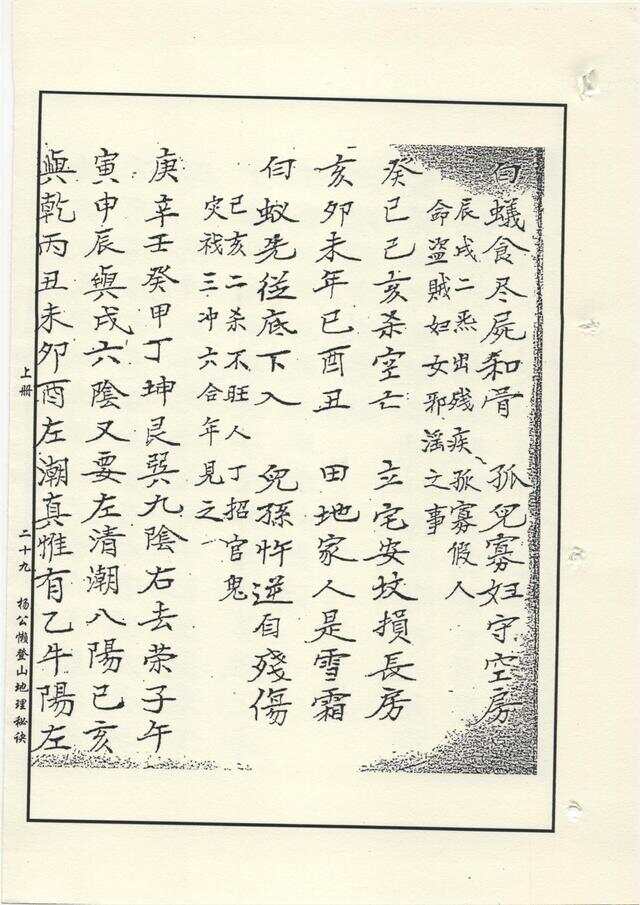 白蟻食尽屍和骨 孤児寡妇守空房
辰戌二煞出残疾、孤寡假人
命盗賊妇女邪滛之事
癸巳巳亥杀空亡 立宅安坟損長房
亥卯未年巳酉丑 田地家人是雪霜
白蚁先從底下入 児孫忤逆自殘傷
巳亥二杀不旺人丁招官鬼
灾祸三冲六合年見之
庚辛壬癸甲丁坤艮巽九陰右去荣子午
寅申辰與戌六陰又要左清潮八陽巳亥
與乾丙丑未卯酉左潮真惟有乙午陽左
上册 二十九 杨公懒登山地理秘诀